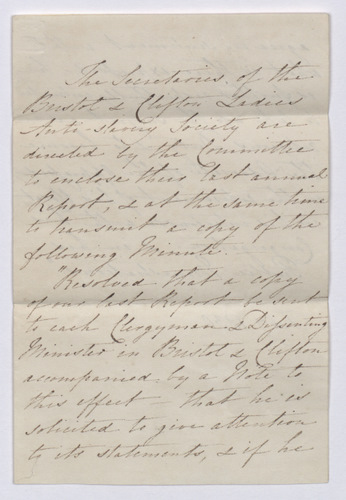 The Secretaries of the
Bristol & Clifton Ladies
Anti-slavery Society are
directed by the Committee
to enclose their last annual
Report, & at the same time
to transmit a copy of the
following Minute.
"Resolved that a copy
of our last Report be sent
to each Clergyman & Dissenting
Minister in Bristol & Clifton
accompanied by a Note to
this effect - that he is
solicited to give attention
to its statements, & if he